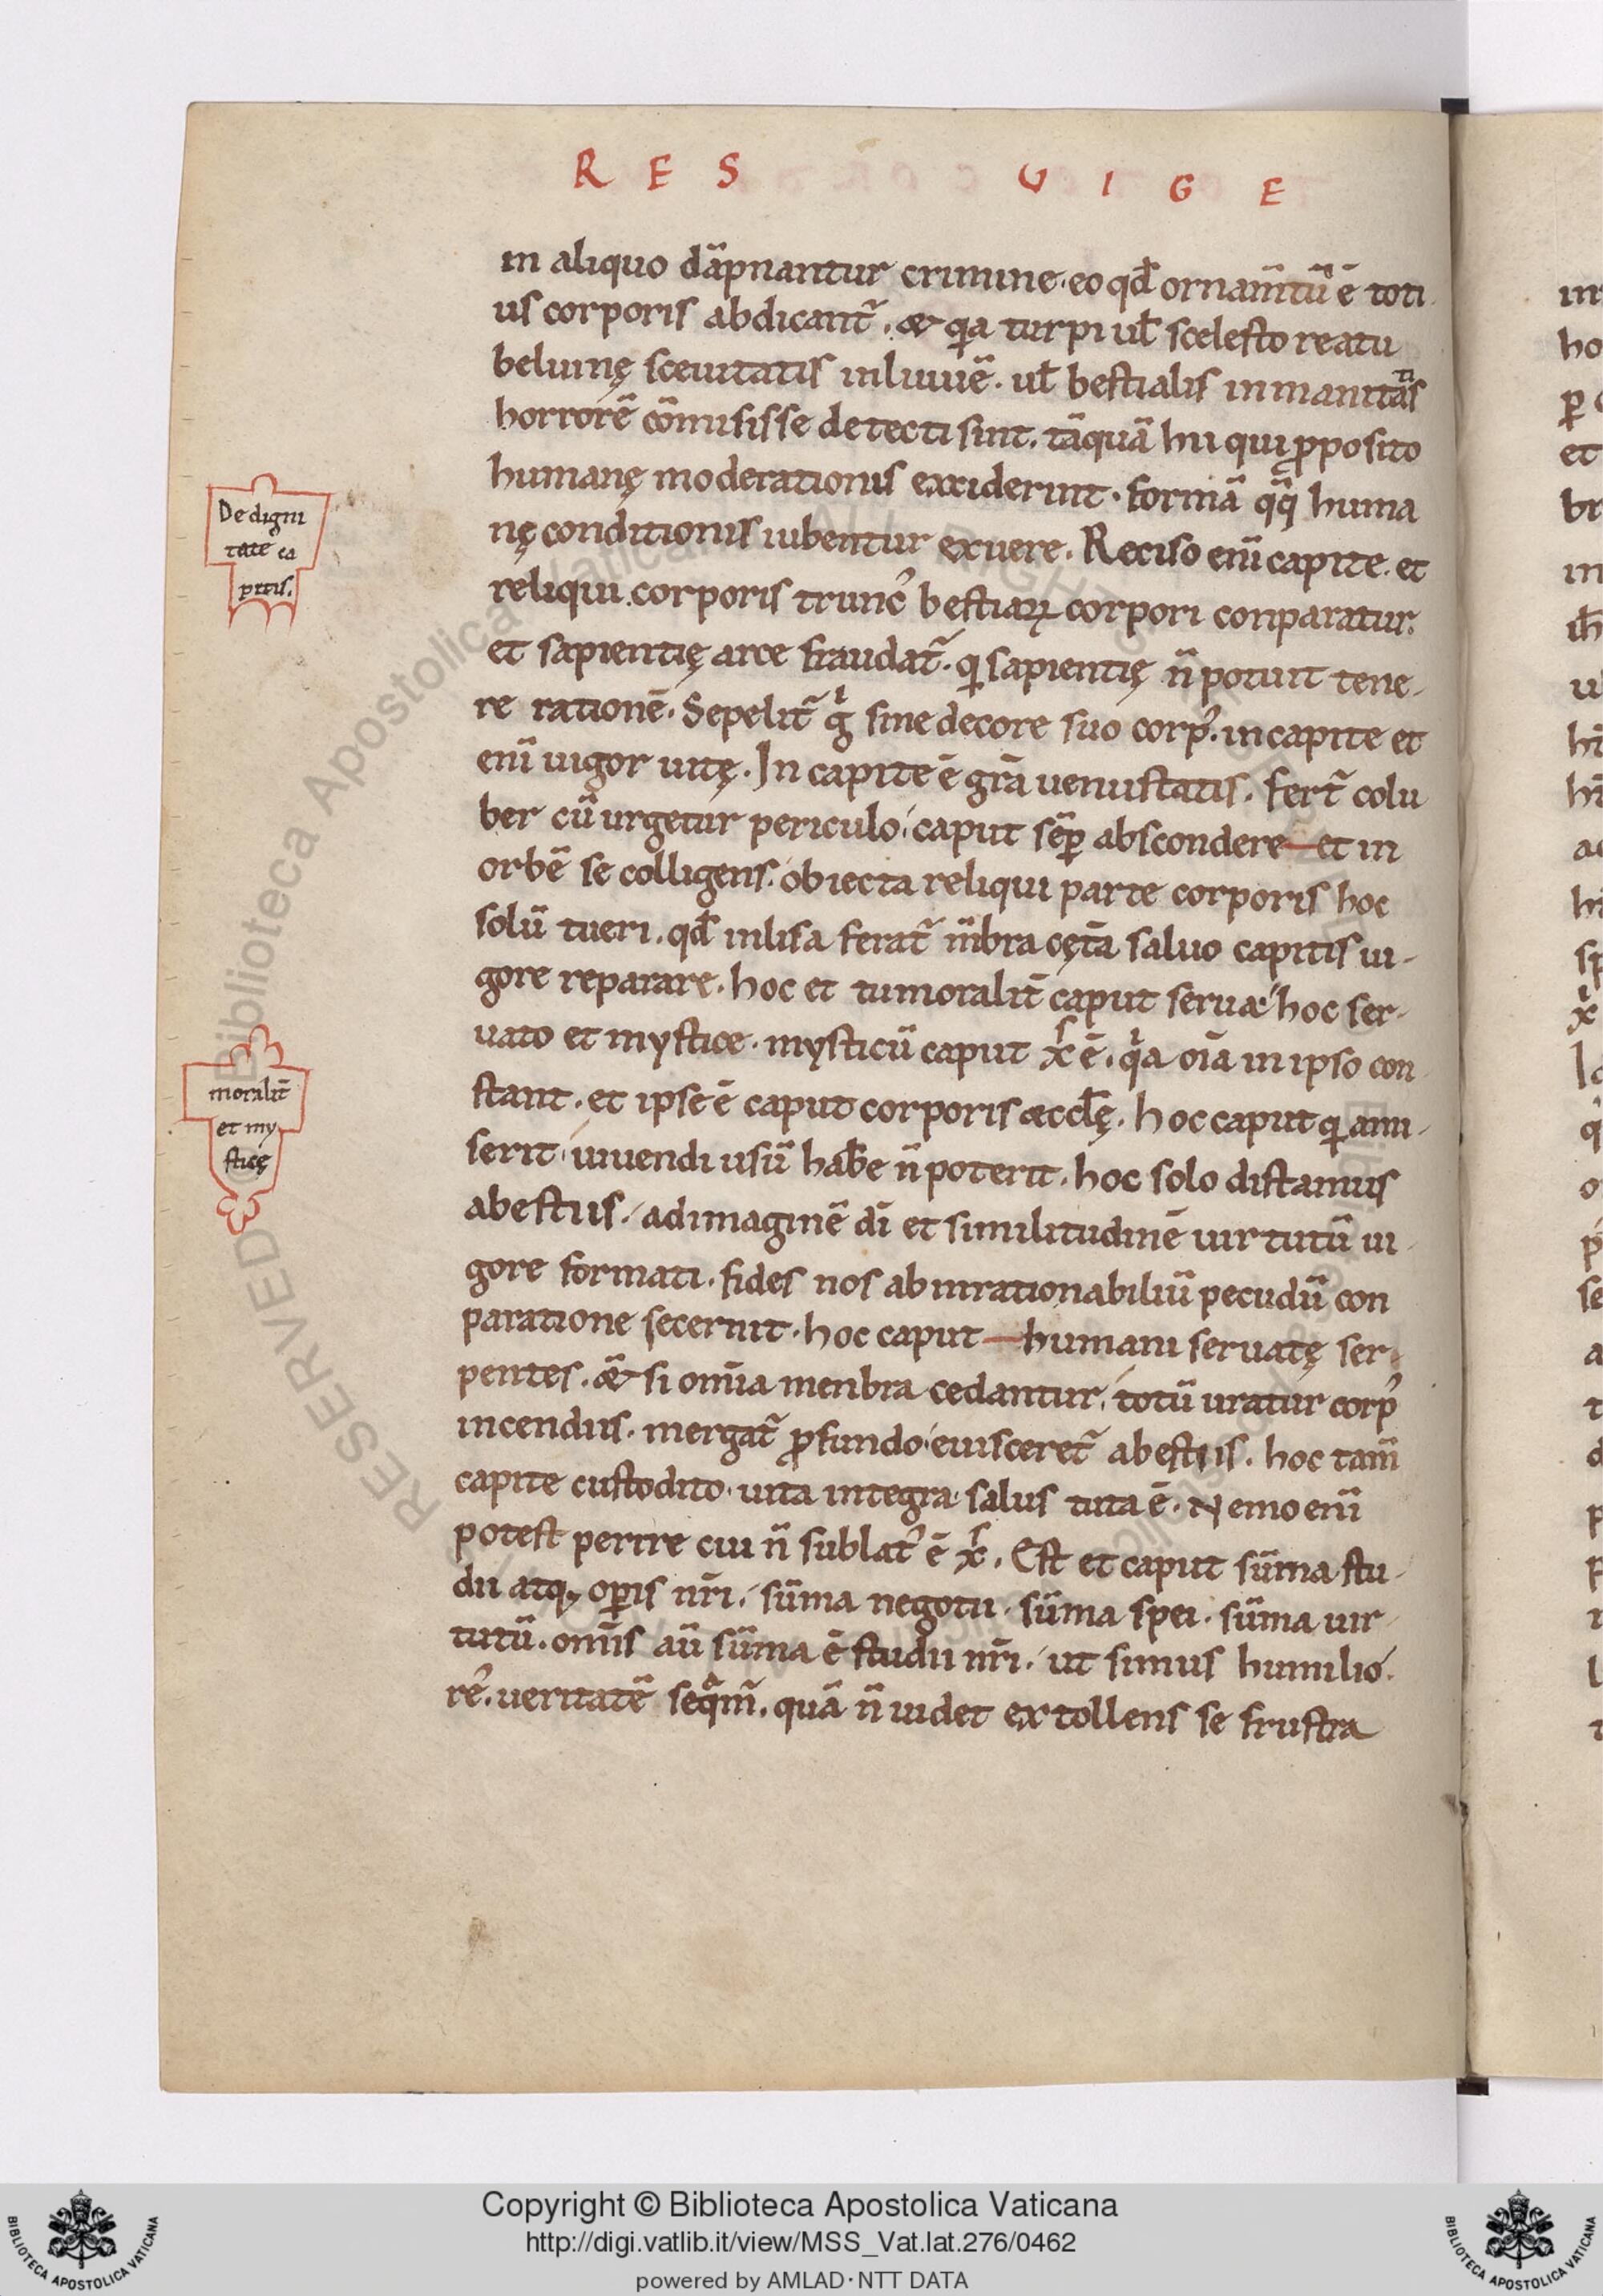 R E S U I G E
in aliquo dãpnantur crimine · eo qđ ornam̃tũ ẽ toti
us corporis abdicant̃ . & qia turpi ul̃ scelesto reatu
beluinę sceuitatis inluuiẽ . ul̃ bestialis inmanitãs
ti
horrorẽ cõmisisse detecti sint . tãquã hii qui ꝓposito
humanę moderationis exciderint . formã qq̃ huma
nę conditionis iubentur exuere . Reciso enĩ capite . et
reliqui corporis trunc᾽ bestiaꝝ corpori conparatur .
et sapientię arce fraudat̃ . qi sapientię ñ potuit tene-
re rationẽ . Sepelit̃ gͥ sine decore suo corp᾽ . in capite et
enĩ uigor uitę . In capite ẽ grã uenustatis . fert̃ colu
ber cũ urgetur periculo caput sẽꝑ abscondere et in
orbẽ se colligens . obiecta reliqui parte corporis hoc
solũ tueri . qđ inlisa ferat̃ m̃bra cęt̃a saluo capitis ui-
gore reparare . hoc et tu moralit̃ caput serua hoc ser-
uato et mystice . mysticũ caput xͥ ẽ . qͥa oĩa in ipso con
stant . et ipse ẽ caput corporis æccl̃ę . hoc caput qi ami-
serit uiuendi usũ hab̃e ñ poterit . hoc solo distamus
a bestiis . ad imaginẽ dĩ et similitudinẽ uirtutũ ui
gore formati . fides nos ab inrationabiliũ pecudũ con
paratione secernit . hoc caput humani seruatę ser-
pentes . &̃ si om̃ia menbra cedantur totũ uratur corp᾽
incendiis . mergat̃ ꝓfundo euisceret̃ a bestiis . hoc tam̃
capite custodito uita integra salus tuta ẽ . Nemo enĩ
potest perire cui ñ sublat᾽ ẽ xͥ . Est et caput sũma stu-
dii atq; oꝑis nr̃i . sũma negotii . sũma spei . sũma uir
tutũ . om̃is aũ sũma ẽ studii nr̃i . ut simus humilio
re᾽ . ueritatẽ seqͣm̃ . quã ñ uidet extollens se frustra
De digni
tate ca
pitis .
moralit̃
et my
sticę
RESERVED
Biblioteca Apostolica Vaticana
Copyright © Biblioteca Apostolica Vaticana
http://digi.vatlib.it/view/MSS_Vat.lat.276/0462
powered by AMLAD·NTT DATA
BIBLIOTECA APOSTOLICA VATICANA
BIBLIOTECA APOSTOLICA VATICANA